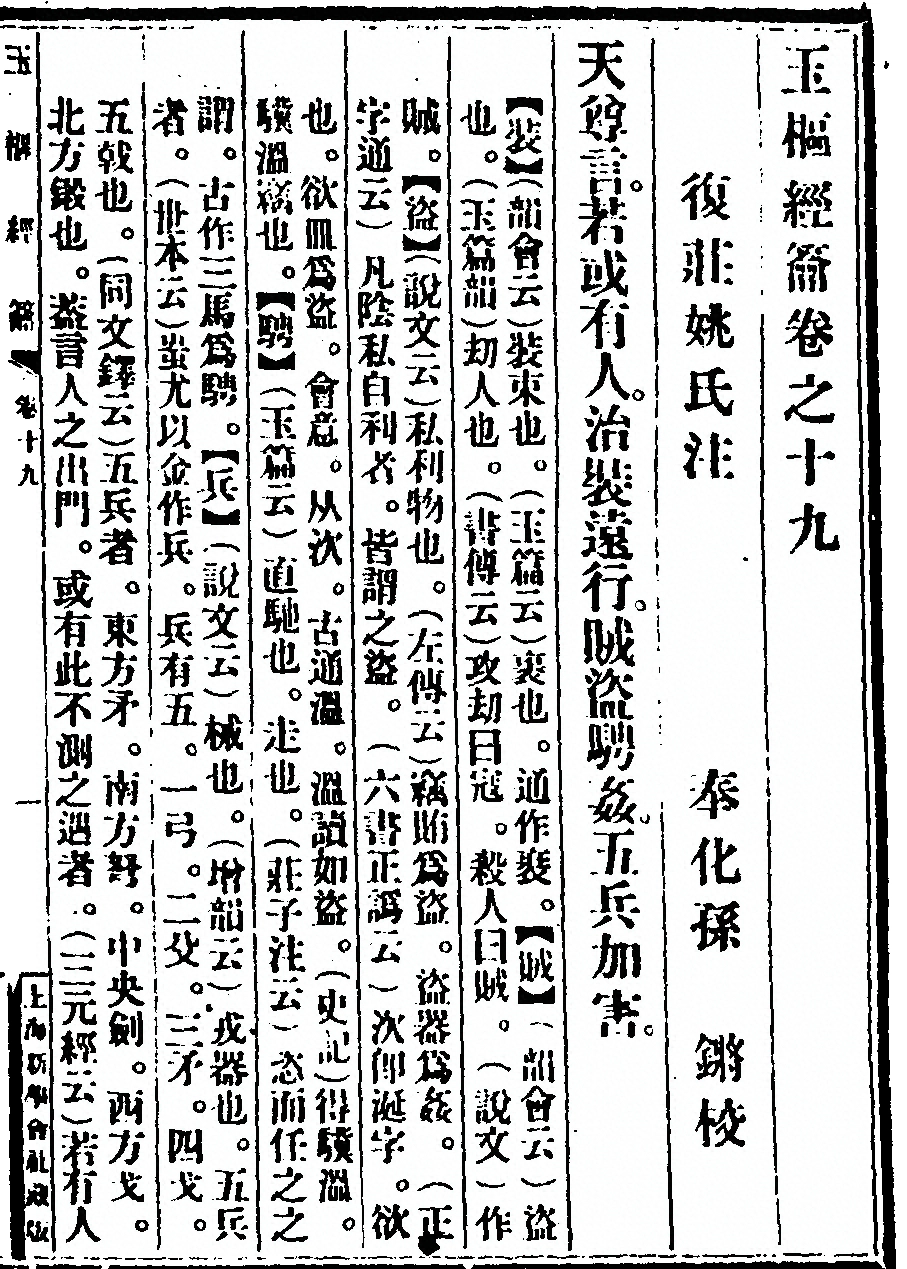 玉樞經籥卷之十九
復莊姚氏注　奉化孫　鏘校
天尊言。若或有人。治裝遠行。賊盜騁姦。五兵加害。
【裝】（韻會云）裝束也。（玉篇云）裹也。通作裝。【賊】（韻會云）盜
也。（玉篇韻）刧人也。（書傳云）攻刧曰寇。殺人曰賊。（說文）作
賊。【盜】（說文云）私利物也。（左傳云）竊賄爲盜。盜器爲姦。（正
字通云）凡陰私自利者。皆謂之盜。（六書正譌云）次卽涎字。欲
也。欲皿爲盜。會意。从次。古通溫。溫讀如盜。（史記）得驥溫。
驥溫竊也。【騁】（玉篇云）直馳也。走也。（莊子注云）恣而任之之
謂。古作三馬爲騁。【兵】（說文云）械也。（增韻云）戎器也。五兵
者。（世本云）蚩尤以金作兵。兵有五。一弓。二殳。三矛。四戈。
五戟也。（同文鐸云）五兵者。東方矛。南方弩。中央劍。西方戈。
北方鍛也。葢言人之出門。或有此不測之遇者。（三元經云）若有人
玉樞經籥　卷十九　一
上海新學會社